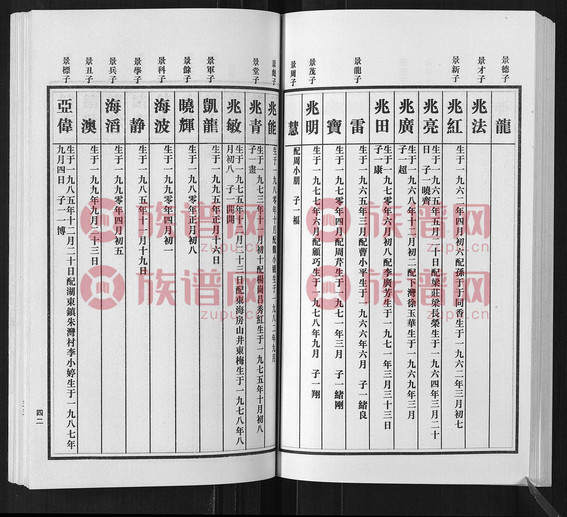 景德子
龍
景才子
兆法
景新子
兆紅
生于一九六二年四月初六配孫于于同香生于一九六二年三月初七
兆亮
生于一九六五年五月二十日配梁莊梁長榮生于一九六四年三月二十
日 子一曉齊
兆廣
生于一九六八年十二月初二配下灣徐玉華生于一九六九年三月
子一超
兆田
生于一九七〇年六月初八配李廣芳生于一九七一年三月三十三日
子一康
景龍子
雷
生于一九六五年三月配曹小平生于一九六六年六月 子一緒良
寶
生于一九七〇年四月配周芹生于一九七一年三月 子一緒剛
景茂子
兆明
生于一九七七年六月配顧巧生于一九七八年九月 子一翔
景周子
慧
配周小朋 子一福
景彪子
兆能
景堂子
兆青
生于一九七三年十一月初十配楊海昌秀紅生于一九七五年十月初八
兆敏
生于一九七五年十二月二十三日配東海房山井東梅生于一九七八年八
月初八 子一開開
景軍子
凱龍
生于二〇〇五年正月十六日
景餘子
曉輝
生于一九八〇年正月初八
景科子
海波
生于一九九〇年四月初一
景學子
静
生于一九八五年十一月十九日
景兵子
海滔
生于一九九〇年四月初五
景丑子
澳
生于一九九九年九月二十三日
景標子
亞偉
生于一九八五年十二月二十日配湖東鎮朱灣村李小婷生于一九八七年
九月四日 子一博
四二
族谱网
zupu.cn